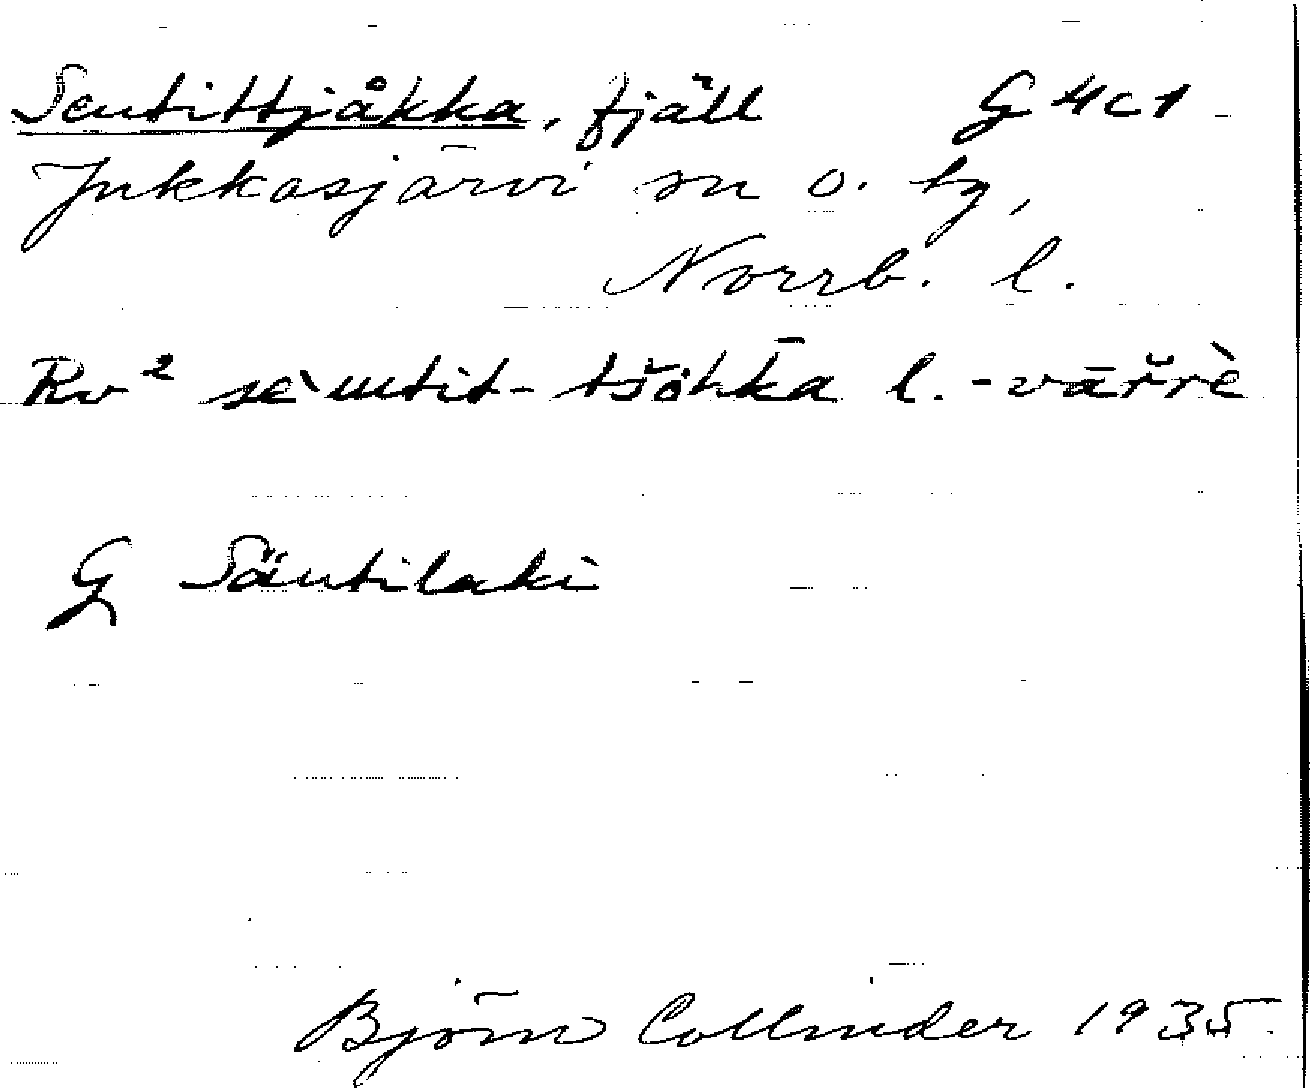 Sentittjåkka, fjäll G 4c1
Jukkasjärvi sn o. tg,
Norrb. l.
Rv² sèntit-tšŏhka l. -vār̆rè
G Säntilaki
Björn Collinder 1935